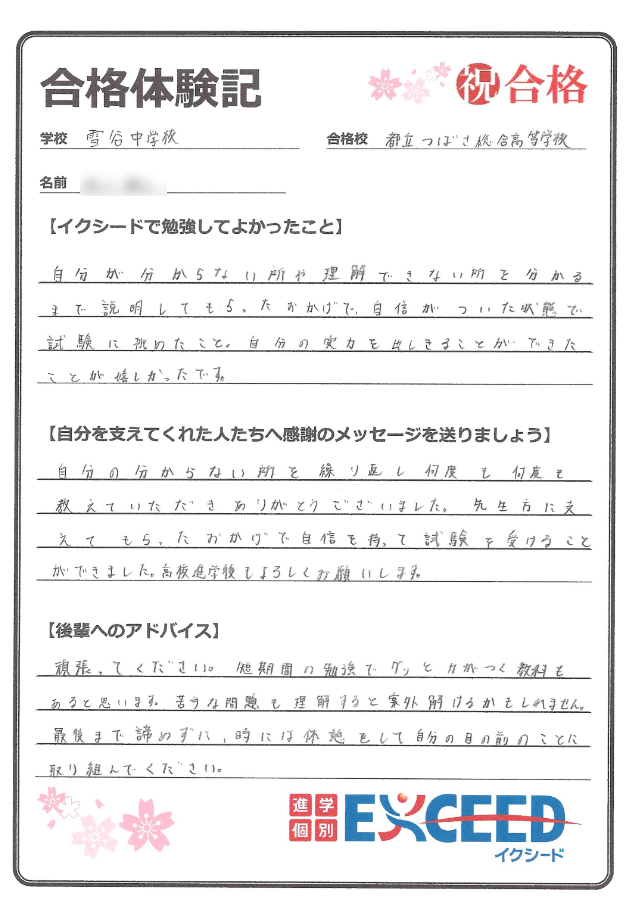 合格体験記
祝 合格
学校 雪谷中学校
合格校 都立つばさ総合高等学校
名前
【イクシードで勉強してよかったこと】
自分が分からない所や理解できない所を分かる
まで説明してもらったおかげで、自信がついた状態で
試験に挑めたこと。自分の実力を出しきることができた
ことが嬉しかったです。
【自分を支えてくれた人たちへ感謝のメッセージを送りましょう】
自分の分からない所を繰り返し何度も何度も
教えていただきありがとうございました。先生方に支
えてもらったおかげで自信を持って試験を受けること
ができました。高校進学後もよろしくお願いします。
【後輩へのアドバイス】
頑張ってください。短期間の勉強でグッと力がつく教科も
あると思います。苦手な問題も理解すると案外解けるかもしれません。
最後まで諦めずに、時には休憩をして自分の目の前のことに
取り組んでください。
進学
個別
EXCEED
イクシード